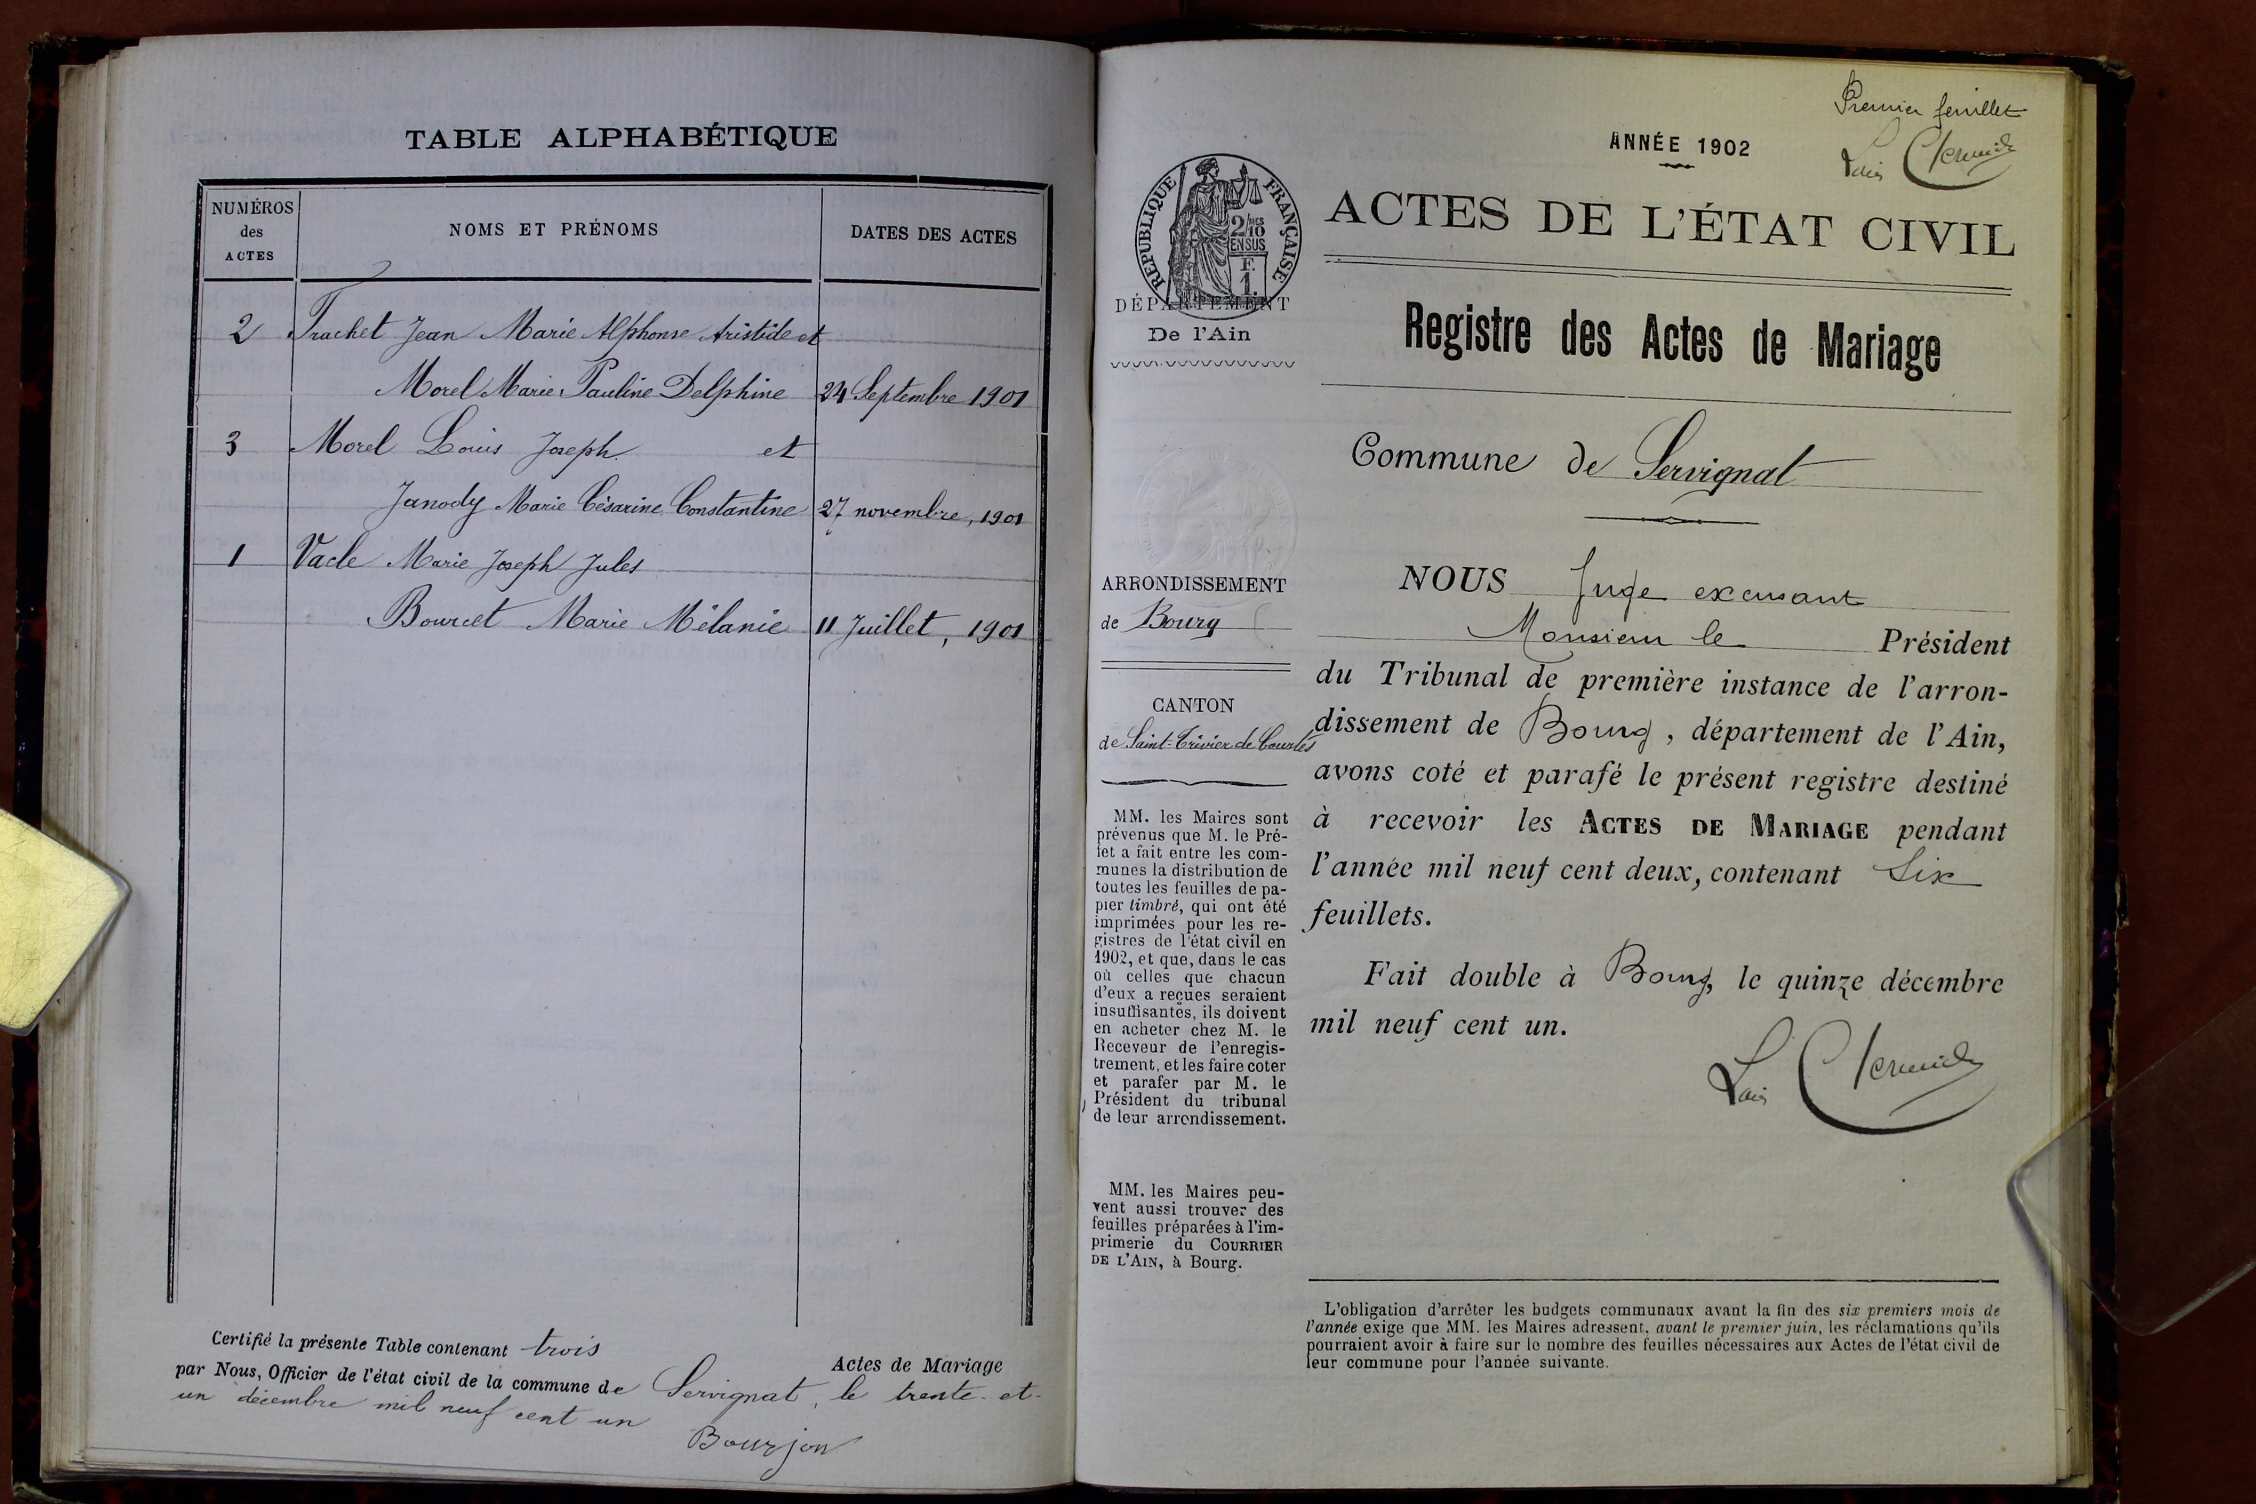 TABLE ALPHABÉTIQUE
NUMÉROS
des
ACTES
NOMS ET PRÉNOMS
DATES DES ACTES
2 Trachet Jean Marie Alphonse Aristide et
Morel Marie Pauline Delphine 24 Septembre 1901
3 Morel Louis Joseph et
Janody Marie Césarine Constantine 27 novembre, 1901
1 Vacle Marie Joseph Jules
Bourcet Marie Mélanie 11 Juillet, 1901
Certifié la présente Table contenant trois Actes de Mariage
par Nous, Officier de l'état civil de la commune de Servignat, le trente-et-
un décembre mil neuf cent un
Bourjon
Premier feuillet
ANNÉE 1902
RÉPUBLIQUE FRANÇAISE
2/10
EN SUS
F.
1.
DÉPARTEMENT
De l'Ain
ARRONDISSEMENT
de Bourg
CANTON
de Saint-Trivier de Courtes
MM. les Maires sont
prévenus que M. le Pré-
fet a fait entre les com-
munes la distribution de
toutes les feuilles de pa-
pier timbré, qui ont été
imprimées pour les re-
gistres de l'état civil en
1902, et que, dans le cas
où celles que chacun
d'eux a reçues seraient
insuffisantes, ils doivent
en acheter chez M. le
Receveur de l'enregis-
trement, et les faire coter
et parafer par M. le
Président du tribunal
de leur arrondissement.
MM. les Maires peu-
vent aussi trouver des
feuilles préparées à l'im-
primerie du COURRIER
DE L'AIN, à Bourg.
ACTES DE L'ÉTAT CIVIL
Registre des Actes de Mariage
Commune de Servignat
NOUS Juge excusant
Monsieur le Président
du Tribunal de première instance de l'arron-
dissement de Bourg, département de l'Ain,
avons coté et parafé le présent registre destiné
à recevoir les ACTES DE MARIAGE pendant
l'année mil neuf cent deux, contenant Six
feuillets.
Fait double à Bourg, le quinze décembre
mil neuf cent un.
L'obligation d'arrêter les budgets communaux avant la fin des six premiers mois de
l'année exige que MM. les Maires adressent, avant le premier juin, les réclamations qu'ils
pourraient avoir à faire sur le nombre des feuilles nécessaires aux Actes de l'état civil de
leur commune pour l'année suivante.